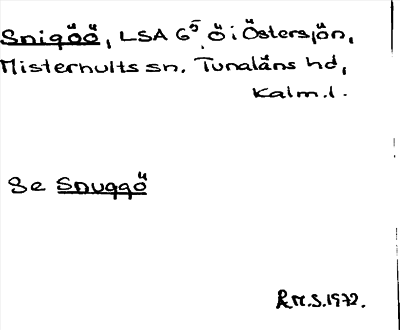 Snigöö, LSA 6⁵, Ö i Östersjön,
Misterhults sn. Tunaläns hd,
Kalm.l.
Se Snuggö
R.M.S. 1972.